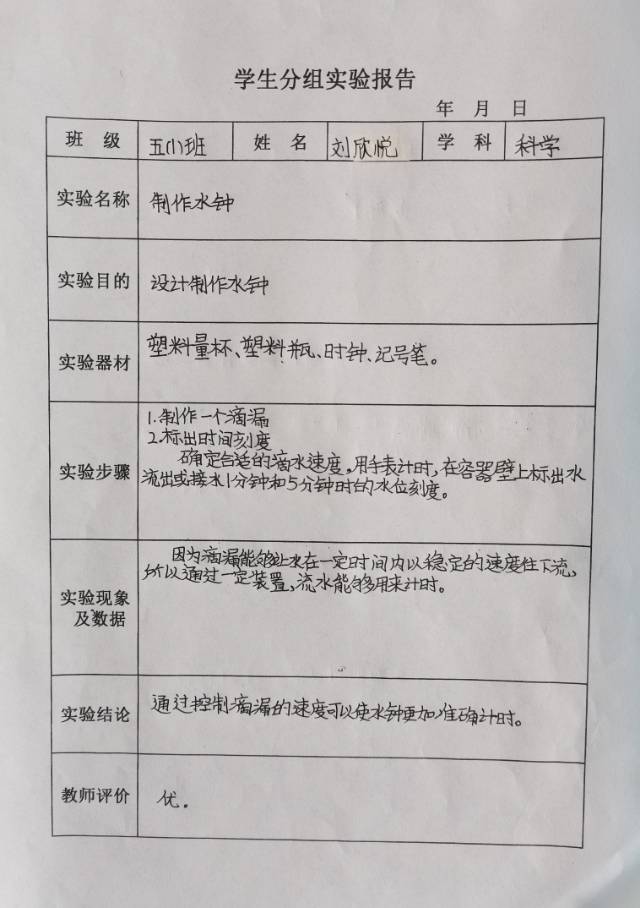 学生分组实验报告
年 月 日
班 级 五(1)班 姓 名 刘欣悦 学 科 科学
实验名称 制作水钟
实验目的 设计制作水钟
实验器材 塑料量杯、塑料瓶、时钟、记号笔。
实验步骤
1.制作一个滴漏
2.标出时间刻度
确定合适的滴水速度。用手表计时,在容器壁上标出水
流出或接水1分钟和5分钟时的水位刻度。
实验现象
及数据
因为滴漏能够让水在一定时间内以稳定的速度往下流,
所以通过一定装置,流水能够用来计时。
实验结论 通过控制滴漏的速度可以使水钟更加准确计时。
教师评价 优。